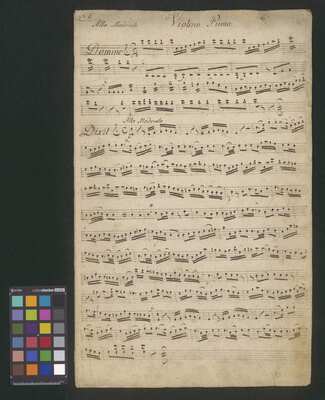 Violino Primo
Allo Moderato
Domine
Allo Moderato
Dixit